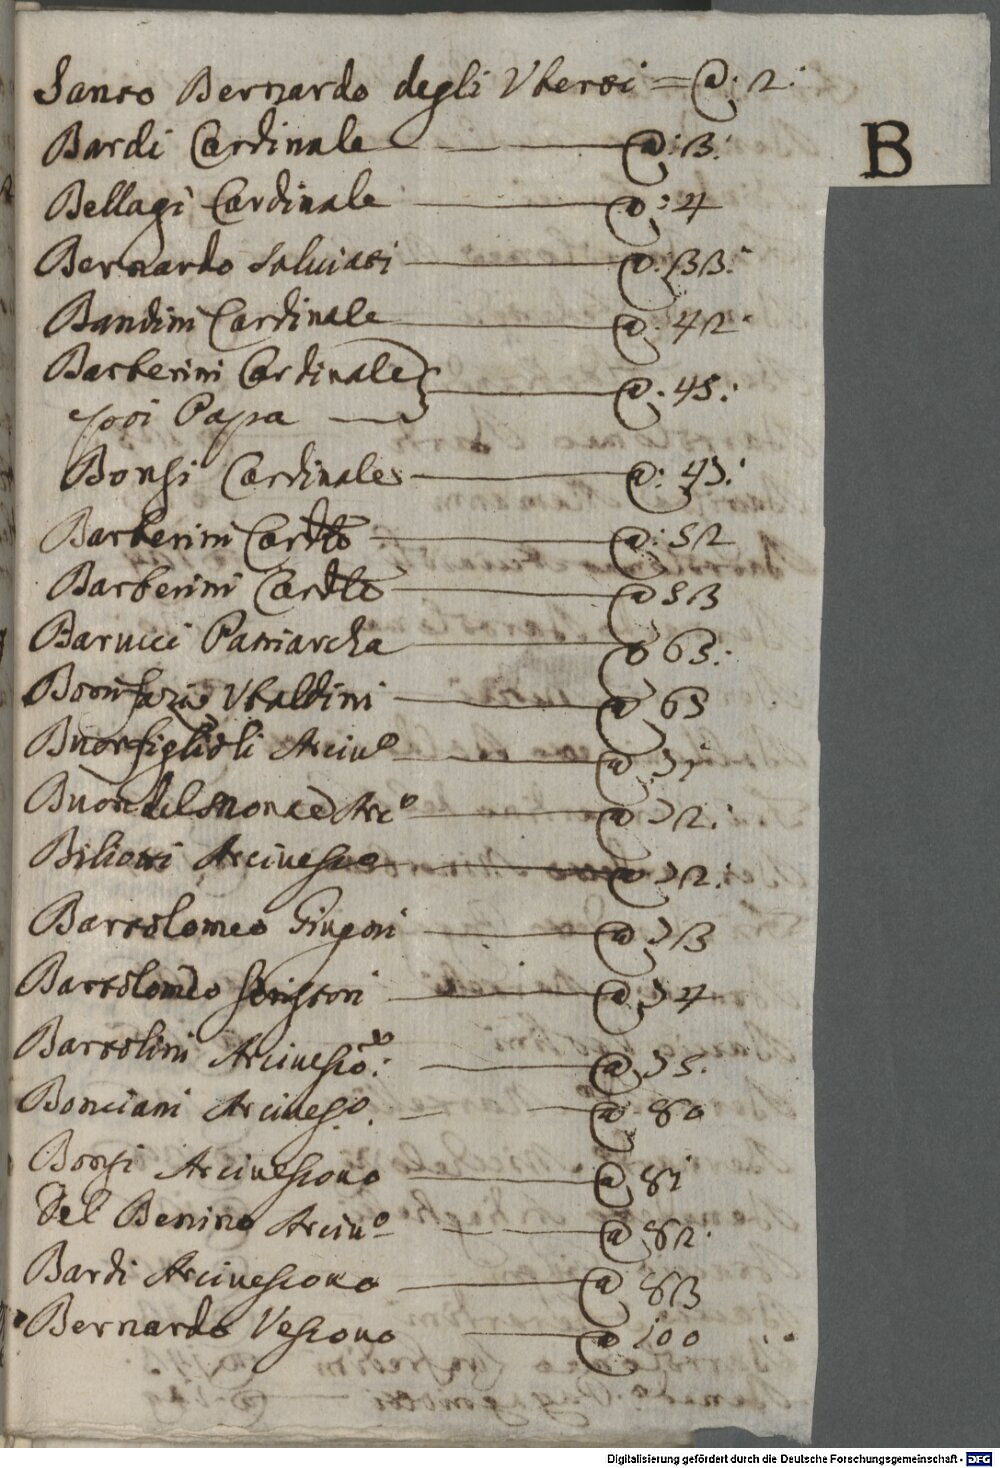 Santo Bernardo degli Vberti = @: 2:
B
Bardi Cardinale @: 3:
Bellagi Cardinale @: 4
Bernardo Saluiati @: 33:
Bandini Cardinale @: 42
Barberini Cardinale
e poi Papa @: 45:
Bonsi Cardinale @: 45:
Barberini Cardle @: 52
Barberini Cardle @ 53
Barucci Patriarcha @ 63:
Bonifazio Vbaldini @ 65
Buonfiglioli Arciuo @ 71
Buondelmonte Arco @ 72:
Biliotti Arciuescò @ 72:
Bartolomeo @ 73
Bartolomeo @ 74
Bartolini Arciuescò: @ 75.
Bonciani Arciueso. @ 80
Bonsi Arciuescouo @ 81
Del Benino Arciuo @ 82
Bardi Arciuescouo @ 83
Bernardo Vescouo @ 100
Digitalisierung gefördert durch die Deutsche Forschungsgemeinschaft - DFG